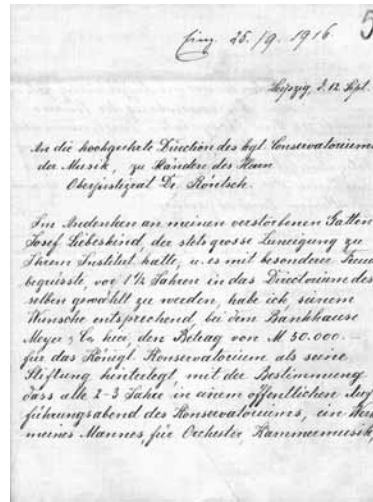 5
Eing. 25./9. 1916.
Leipzig, d. 12. Sept.
An die hochgeehrte Direction des kgl. Conservatoriums
der Musik, zu Händen des Herrn
Oberjustizrat Dr. Röntsch.
Im Andenken an meinen verstorbenen Gatten
Josef Liebeskind, der stets grosse Zuneigung zu
Ihrem Institut hatte, u. es mit besonderer Freude
begrüsste, vor 1½ Jahren in das Directorium des
selben gewählt zu werden, habe ich seinem
Wunsche entsprechend bei dem Bankhause
Meyer & Co hier, den Betrag von M 50.000.—
für das Königl. Konservatorium als seine
Stiftung hinterlegt, mit der Bestimmung
dass alle 2-3 Jahre in einem öffentlichen Auf
führungsabend des Konservatoriums, ein Werk
meines Mannes, für Orchester, Kammermusik,